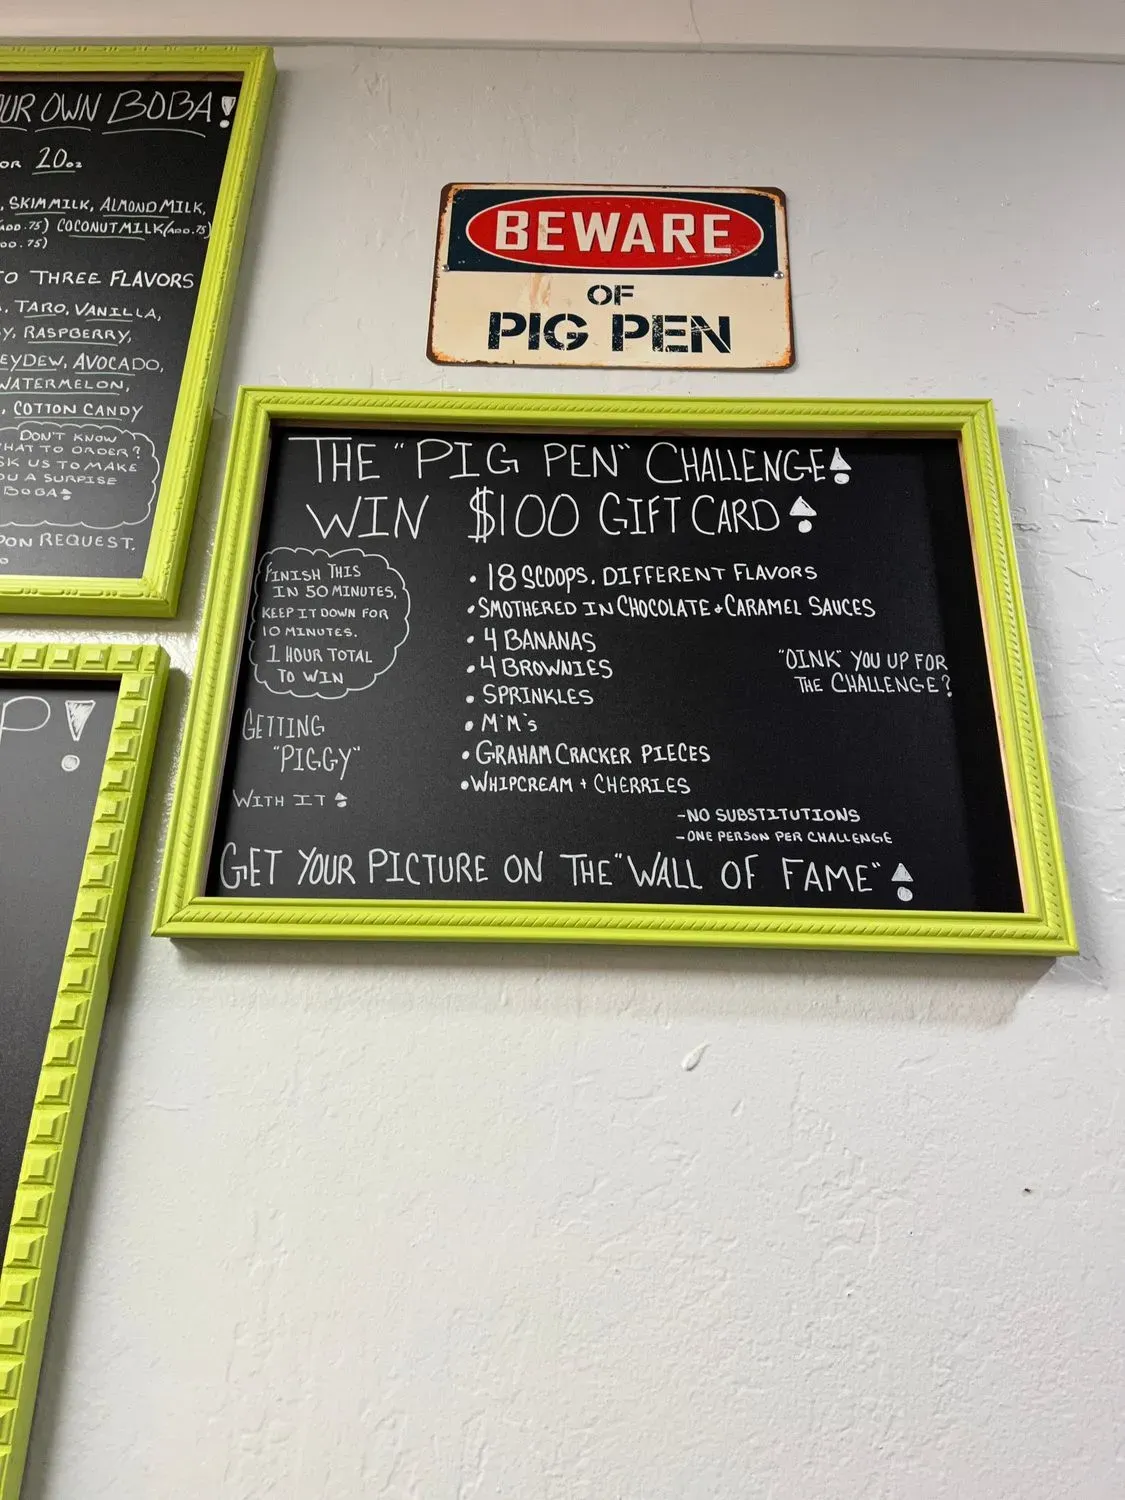 OUR OWN BOBA!
OR 20oz
, SKIM MILK, ALMOND MILK,
(ADD .75) COCONUT MILK (ADD .75)
DD .75)
TO THREE FLAVORS
, TARO, VANILLA,
Y, RASPBERRY,
EYDEW, AVOCADO,
WATERMELON,
, COTTON CANDY
DON'T KNOW
HAT TO ORDER?
SK US TO MAKE
OU A SURPISE
BOBA!
PON REQUEST.
P!
BEWARE
OF
PIG PEN
THE "PIG PEN" CHALLENGE!
WIN $100 GIFT CARD!
FINISH THIS
IN 50 MINUTES,
KEEP IT DOWN FOR
10 MINUTES.
1 HOUR TOTAL
TO WIN
GETTING
"PIGGY"
WITH IT!
• 18 SCOOPS. DIFFERENT FLAVORS
• SMOTHERED IN CHOCOLATE + CARAMEL SAUCES
• 4 BANANAS
• 4 BROWNIES
• SPRINKLES
• M'M's
• GRAHAM CRACKER PIECES
• WHIPCREAM + CHERRIES
"OINK" YOU UP FOR
THE CHALLENGE?
-NO SUBSTITUTIONS
-ONE PERSON PER CHALLENGE
GET YOUR PICTURE ON THE "WALL OF FAME"!